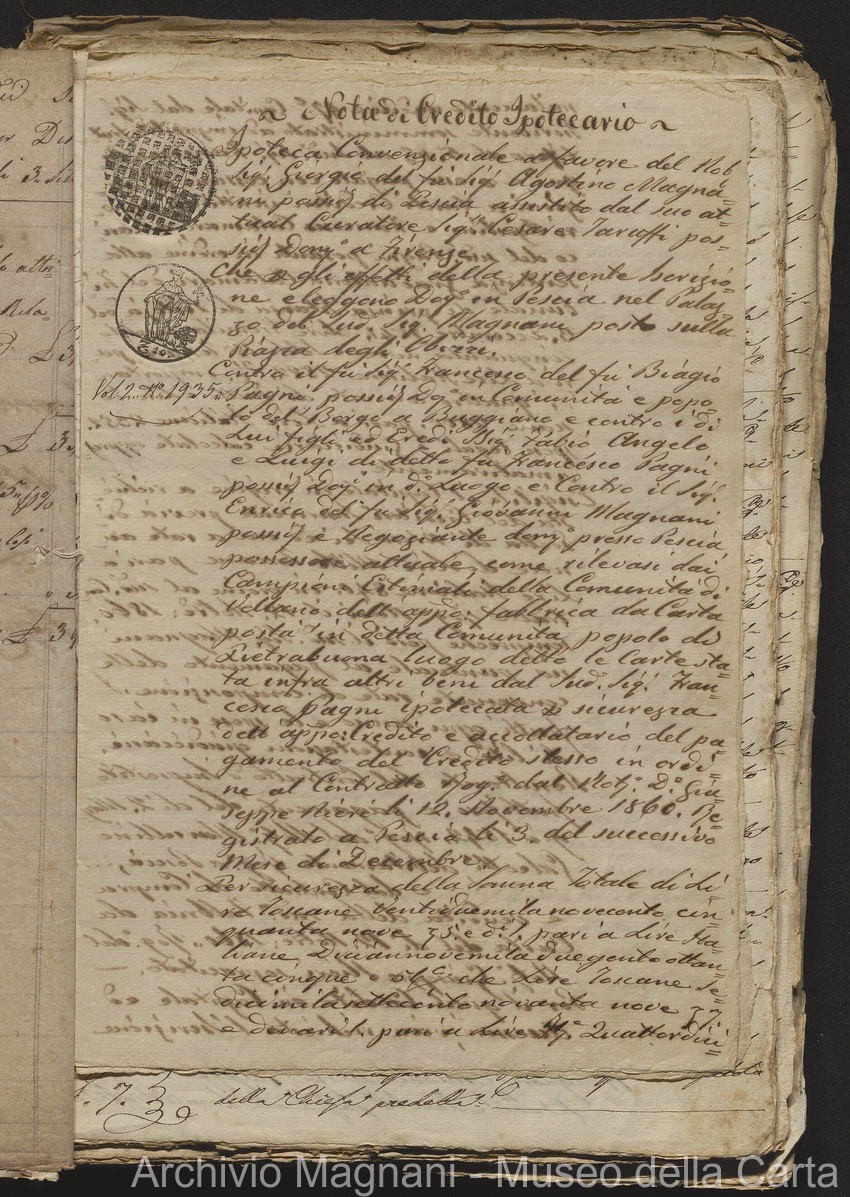 ~ Nota di Credito Ipotecario ~
Ipoteca Convenzionale a favore del Nob
Sig. Giorgio del fu Sig. Agostino Magna=
ni possid. di Pescia assistito dal suo at=
tual Curatore Sig. Cesare Taruffi pos=
sid. Dom.o a Firenze
Che p gli effetti della presente Iscrizio=
ne eleggono Dom.o in Pescia nel Palaz=
zo del Sud. Sig. Magnani posto sulla
Piazza degli Obizzi.
Vol: 2. No. 1935.
Contro il fu Sig. Francesco del fu Biagio
Pagni possid. Do.o in Comunità e popo=
lo del Borgo a Buggiano e contro i di
Lui figli ed Eredi Sig. Fabio Angelo
e Luigi di detto fu Francesco Pagni
possid. Dom. in d.o Luogo e Contro il Sig.
Enrico del fu Sig. Giovanni Magnani
possid. e Negoziante dom.o presso Pescia
possessore attuale come rilevasi dai
Campioni Estimali della Comunità di
Vellano dell'appo: fabbrica da Carta
posta in detta Comunità popolo di
Pietrabuona luogo detto le Carte sta=
ta infra altri beni dal Sud. Sig. Fran=
cesco Pagni ipotecata p sicurezza
dell'appo: Credito e accollatario del pa=
gamento del Credito stesso in ordi=
ne al Contratto Rog.o dal Not. D. Giu=
seppe Nieri li 12. Novembre 1860. Re=
gistrato a Pescia li 3. del successivo
Mese di Decembre.
Per sicurezza della Somma Totale di Li=
re Toscane Ventiduemila novecento cin=
quanta nove 35. e d. 1. pari a Lire Ita=
liane Diciannovemila duegento ottan=
ta cinque e 56 C. che Lire Toscane Se=
dicimila settecento novanta nove
e denari 1. pari a Lire It.e Quattordici=
della Chiesa predetta.
Archivio Magnani - Museo della Carta